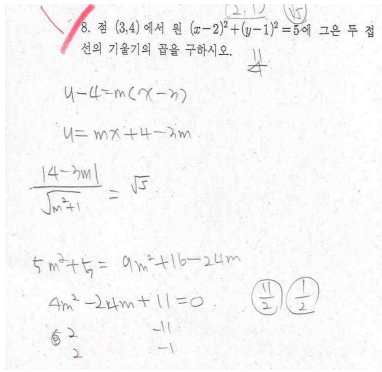 (2,1) √5
8. 점 (3,4)에서 원 (x-2)²+(y-1)²=5에 그은 두 접
선의 기울기의 곱을 구하시오. 11/4
y-4=m(x-3)
y=mx+4-3m
|4-3m| / √m²+1 = √5
5m²+5=9m²+16-24m
4m²-24m+11=0. 11/2 1/2
2 -11
2 -1